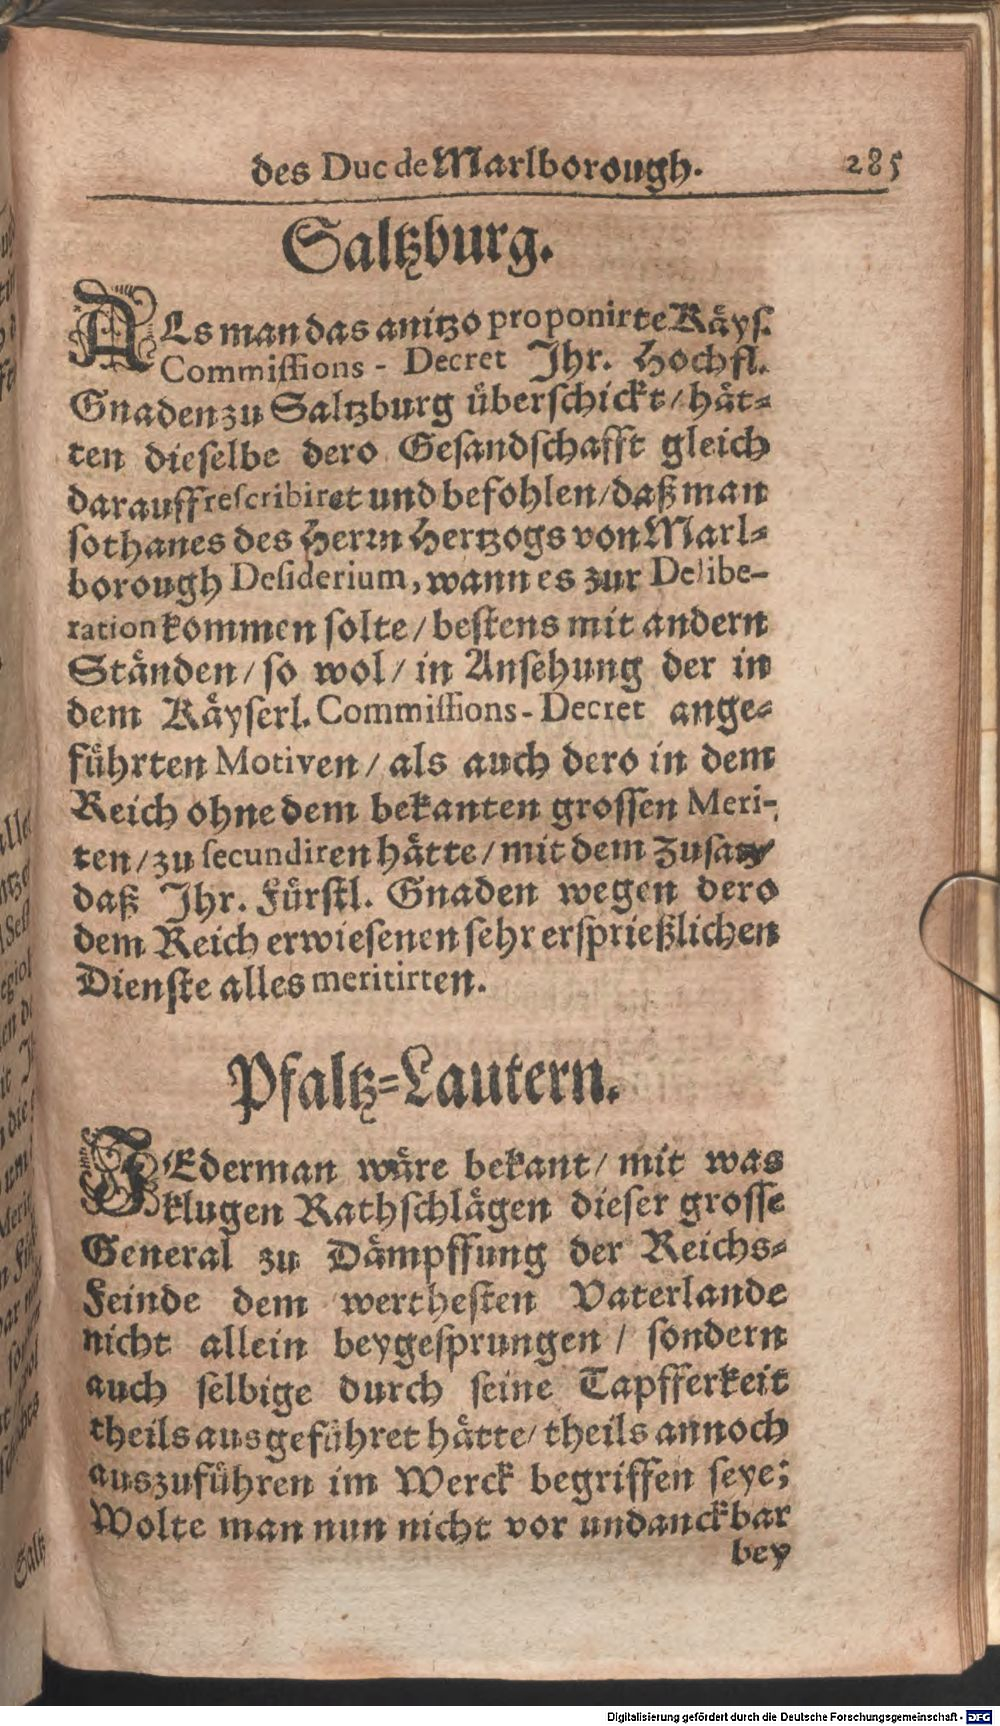 des Duc de Marlborough. 285
Saltzburg.
ALs man das anitzo proponirte Käys.
Commissions - Decret Ihr. Hochfl.
Gnaden zu Saltzburg überschickt / hät-
ten dieselbe dero Gesandschafft gleich
darauff rescribiret und befohlen / daß man
sothanes des Herrn Hertzogs von Marl-
borough Desiderium, wann es zur Delibe-
ration kommen solte / bestens mit andern
Ständen / so wol / in Ansehung der in
dem Käyserl. Commissions - Decret ange-
führten Motiven / als auch dero in dem
Reich ohne dem bekanten grossen Meri-
ten / zu secundiren hätte / mit dem Zusatz /
daß Ihr. Fürstl. Gnaden wegen dero
dem Reich erwiesenen sehr ersprießlichen
Dienste alles meritirten.
Pfaltz-Lautern.
JEderman wäre bekant / mit was
klugen Rathschlägen dieser grosse
General zu Dämpffung der Reichs-
Feinde dem werthesten Vaterlande
nicht allein beygesprungen / sondern
auch selbige durch seine Tapfferkeit
theils ausgeführet hätte / theils annoch
auszuführen im Werck begriffen seye;
Wolte man nun nicht vor undanckbar
bey
Digitalisierung gefördert durch die Deutsche Forschungsgemeinschaft - DFG